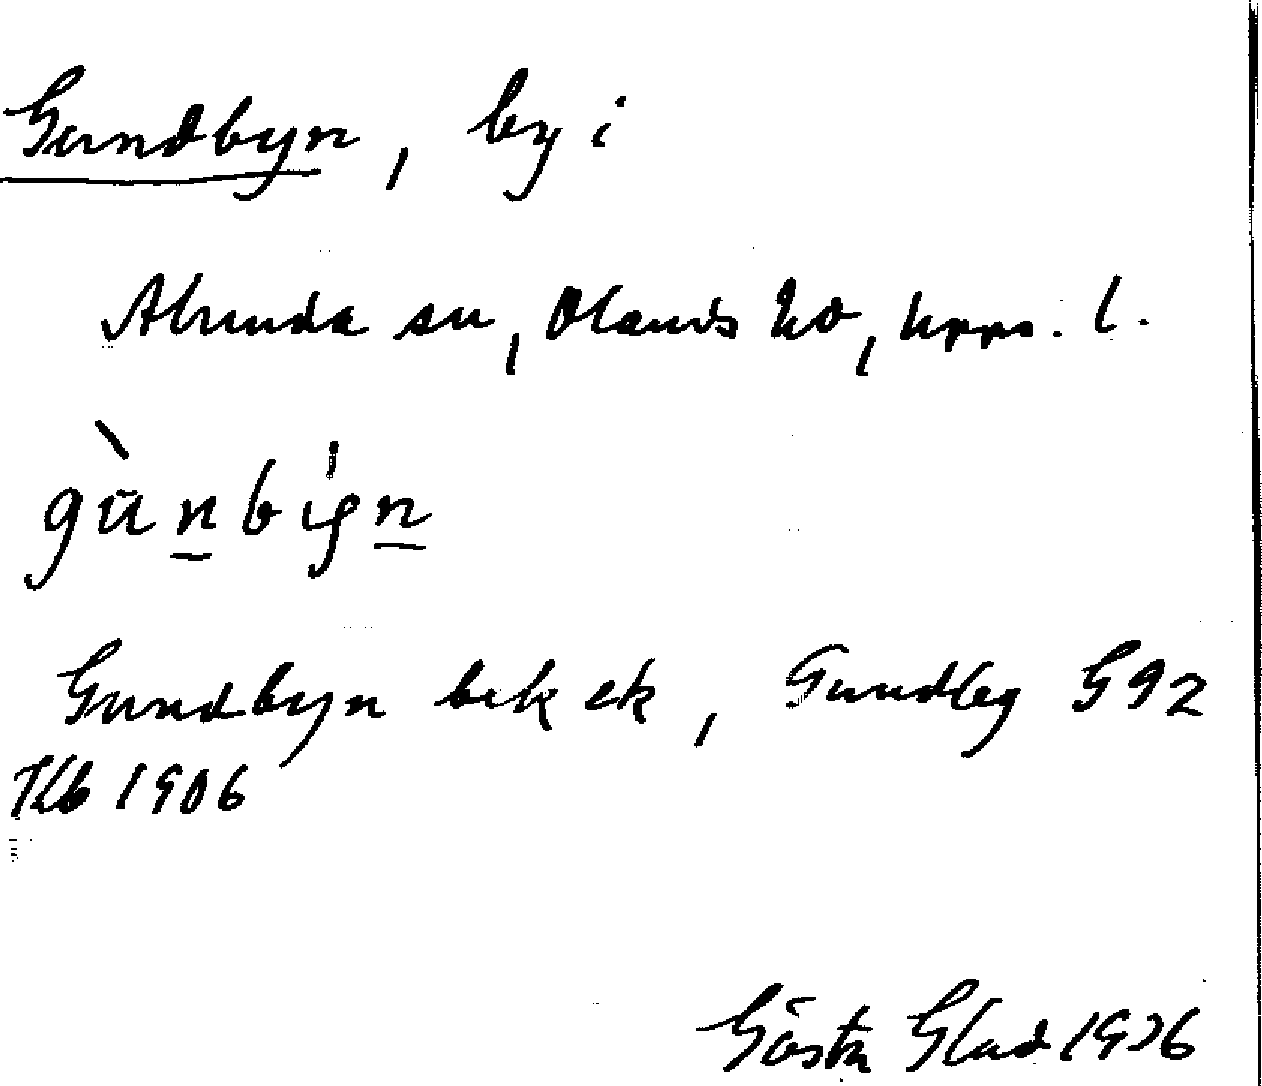 Gundbyn, by i
Alunda sn, Olands hd, Upps. l.
gùnbyn
Gundbyn bek ek, Gundby G 92
Kb 1906
Gösta Glad 1936